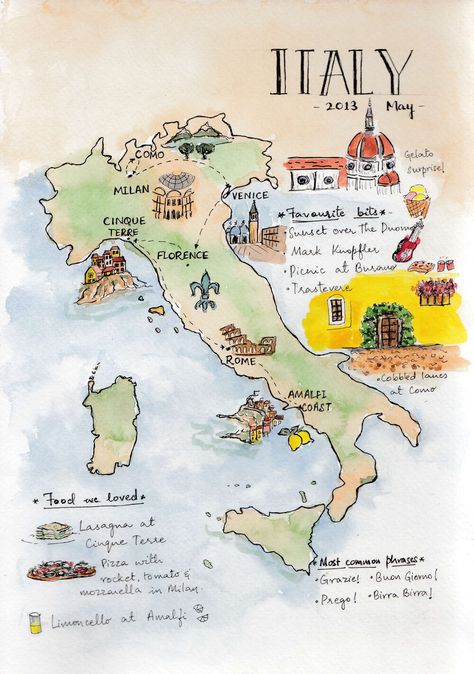 ITALY
- 2013 May -
Gelato
surprise!
COMO
MILAN
VENICE
CINQUE
TERRE
FLORENCE
ROME
AMALFI
COAST
* Favourite bits *
• Sunset over The Duomo
• Mark Knopfler
• Picnic at Burano
• Trastevere
• Cobbled lanes
at Como
* Food we loved *
Lasagna at
Cinque Terre
Pizza with
rocket, tomato &
mozzarella in Milan.
Limoncello at Amalfi
* Most common phrases *
• Grazie! • Buon Giorno!
• Prego! • Birra Birra!